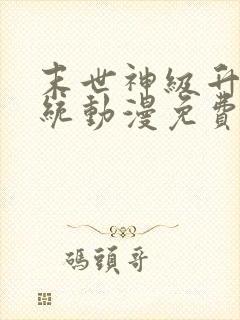 末世神級升
統動漫免費
碼頭哥